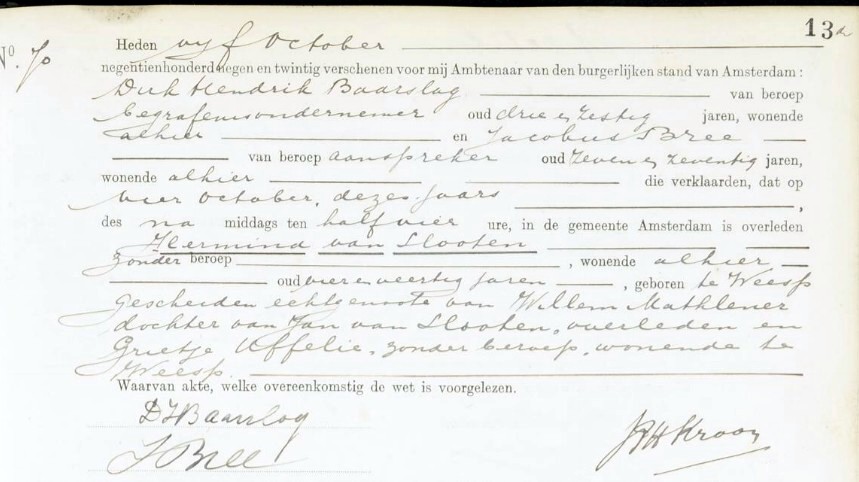 13a
No. 70 Heden vyf October
negentienhonderd negen en twintig verschenen voor mij Ambtenaar van den burgerlijken stand van Amsterdam:
Dirk Hendrik Baarslag van beroep
begrafenisondernemer oud drie en zestig jaren, wonende
alhier en Jacobus Bree
van beroep aanspreker oud zeven en zeventig jaren,
wonende alhier die verklaarden, dat op
vier october, dezes jaars,
des na middags ten half vier ure, in de gemeente Amsterdam is overleden
Hermina van Slooten
zonder beroep, wonende alhier
oud vier en veertig jaren, geboren te Weesp
gescheiden echtgenoote van Willem Mathlener
dochter van Jan van Slooten, overleden en
Grietje Uffelie, zonder beroep, wonende te
Weesp.
Waarvan akte, welke overeenkomstig de wet is voorgelezen.
DHBaarslag
J Bree
Kroon